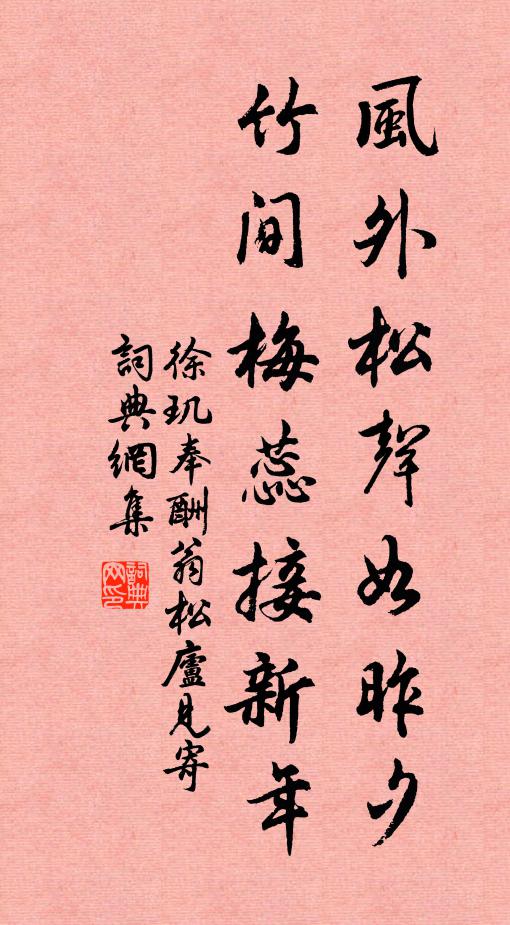 風外松聲如昨夕
竹间梅蕊接新年
徐玑奉酬翁松廬見寄
詞典網集
詞典
网印